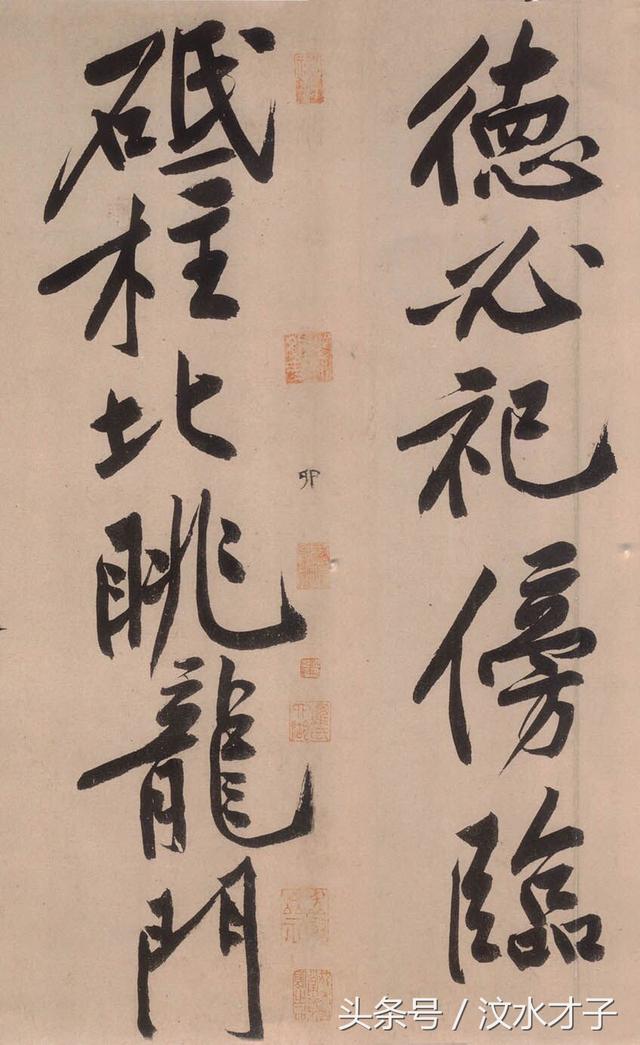 德必祀傍臨
砥柱北眺龍門
卯
头条号 / 汶水才子